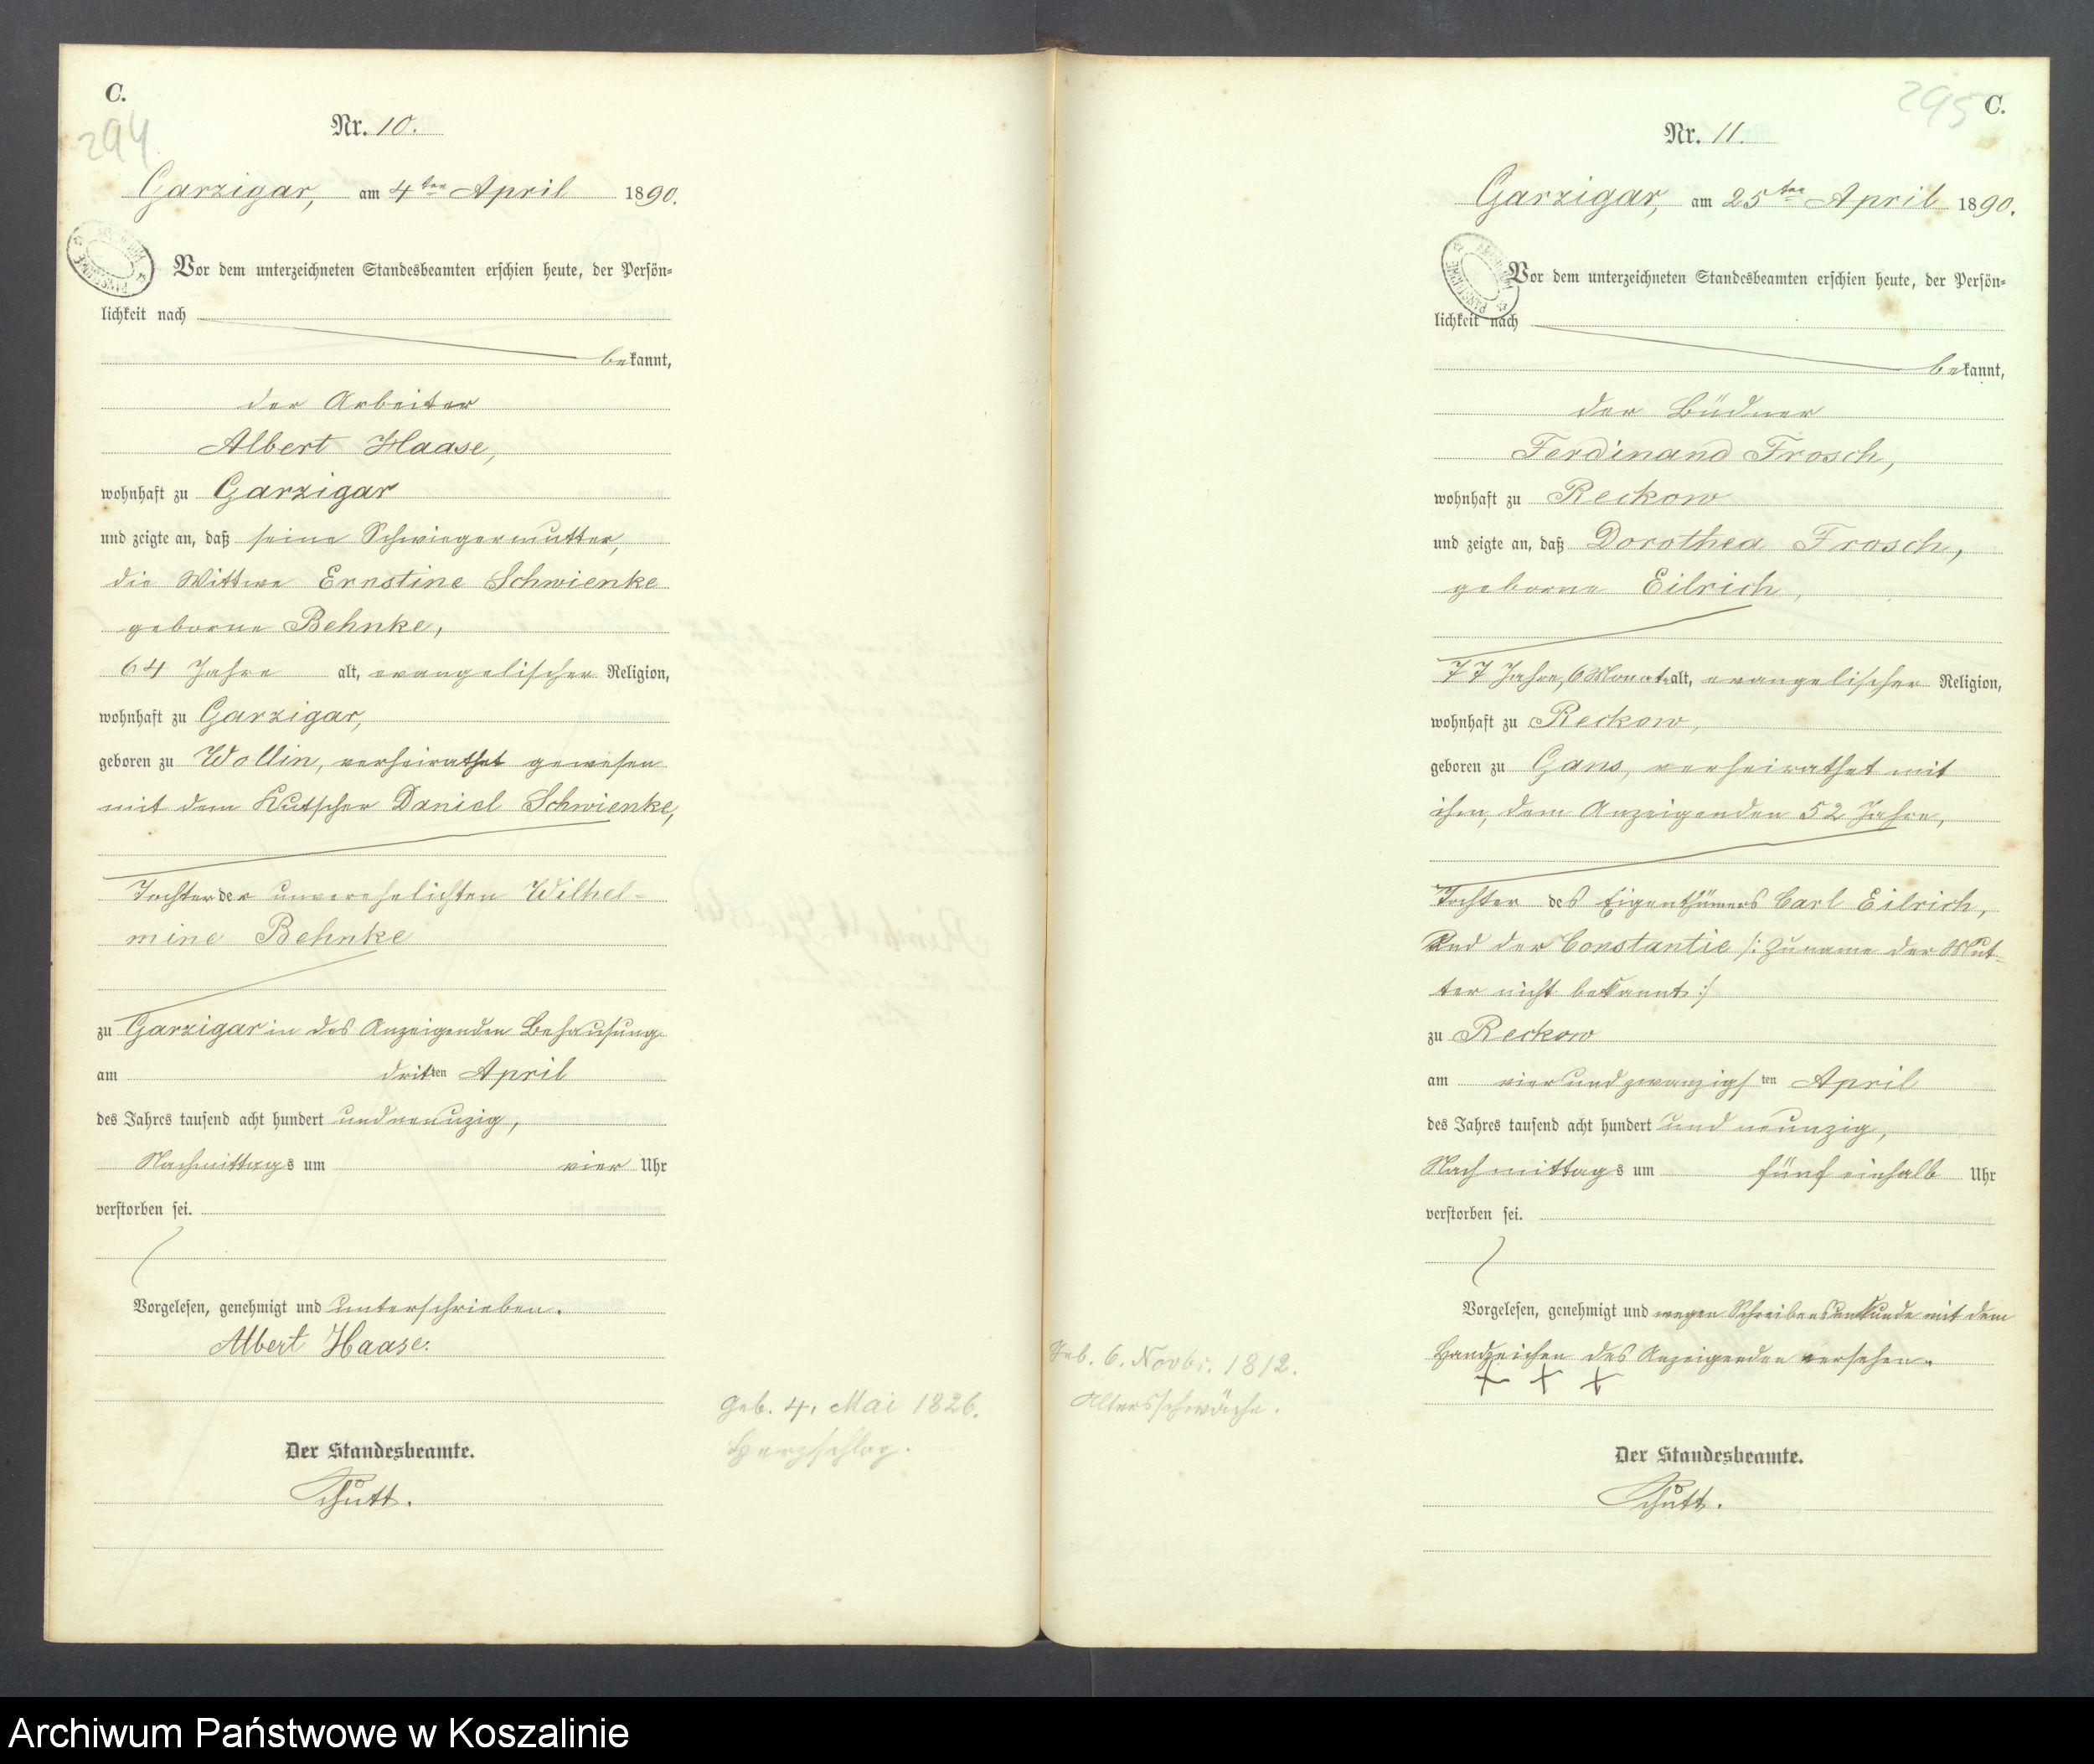 C.
294.
Nr. 10.
Garzigar, am 4ten April 1890.
Vor dem unterzeichneten Standesbeamten erschien heute, der Persön-
lichkeit nach
bekannt,
der Arbeiter
Albert Haase,
wohnhaft zu Garzigar
und zeigte an, daß seine Schwiegermutter,
die Wittwe Ernstine Schwienke
geborne Behnke,
64 Jahre alt, evangelischer Religion,
wohnhaft zu Garzigar,
geboren zu Wollin, verheirathet gewesen
mit dem Kutscher Daniel Schwienke,
Tochter der unverehelichten Wilhel-
mine Behnke
zu Garzigar in des Anzeigenden Behausung
am dritten April
des Jahres tausend acht hundert und neunzig,
Nachmittags um vier Uhr
verstorben sei.
Vorgelesen, genehmigt und unterschrieben.
Albert Haase.
geb. 4. Mai 1826.
Herzschlag.
Der Standesbeamte.
Schütt.
295
C.
Nr. 11.
Garzigar, am 25ten April 1890.
Vor dem unterzeichneten Standesbeamten erschien heute, der Persön-
lichkeit nach
bekannt,
der Büdner
Ferdinand Frosch,
wohnhaft zu Reckow
und zeigte an, daß Dorothea Frosch,
geborne Eilrich,
77 Jahre, 6 Monat alt, evangelischer Religion,
wohnhaft zu Reckow,
geboren zu Gans, verheirathet mit
ihm, dem Anzeigenden 52 Jahre,
Tochter des Eigenthümers Carl Eilrich,
und der Constantie /: Zuname der Mut-
ter nicht bekannt :/
zu Reckow
am vierundzwanzigsten April
des Jahres tausend acht hundert und neunzig,
Nachmittags um fünf einhalb Uhr
verstorben sei.
Vorgelesen, genehmigt und wegen Schreibensunkunde mit dem
Handzeichen des Anzeigenden versehen.
+ + +
Geb. 6. Novbr. 1812.
Altersschwäche.
Der Standesbeamte.
Schütt.
Archiwum Państwowe w Koszalinie